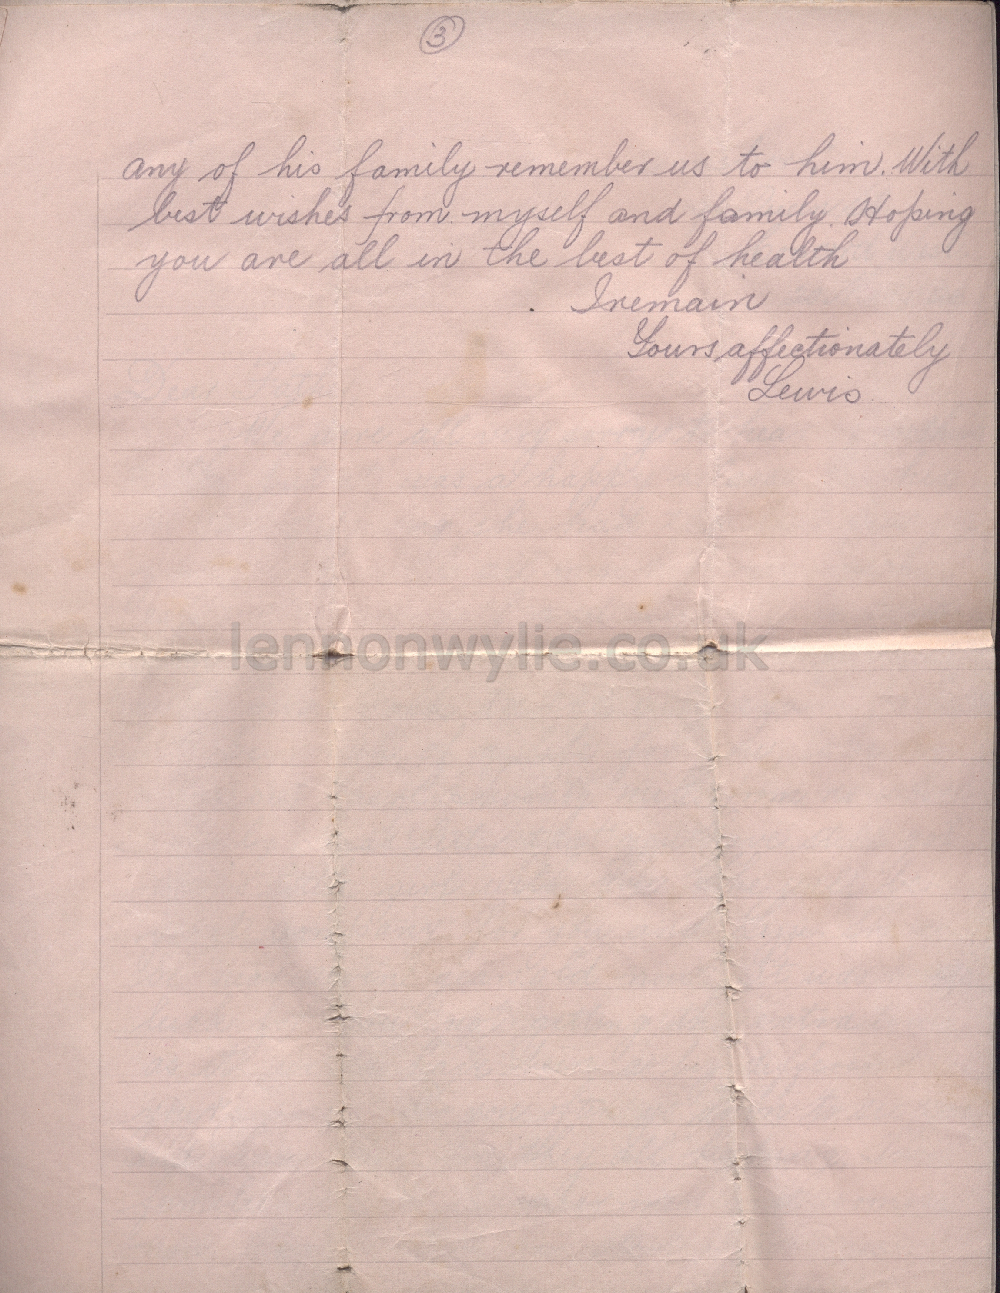 3
any of his family remember us to him. With
best wishes from myself and family. Hoping
you are all in the best of health
I remain
Yours affectionately
Lewis
lennonwylie.co.uk